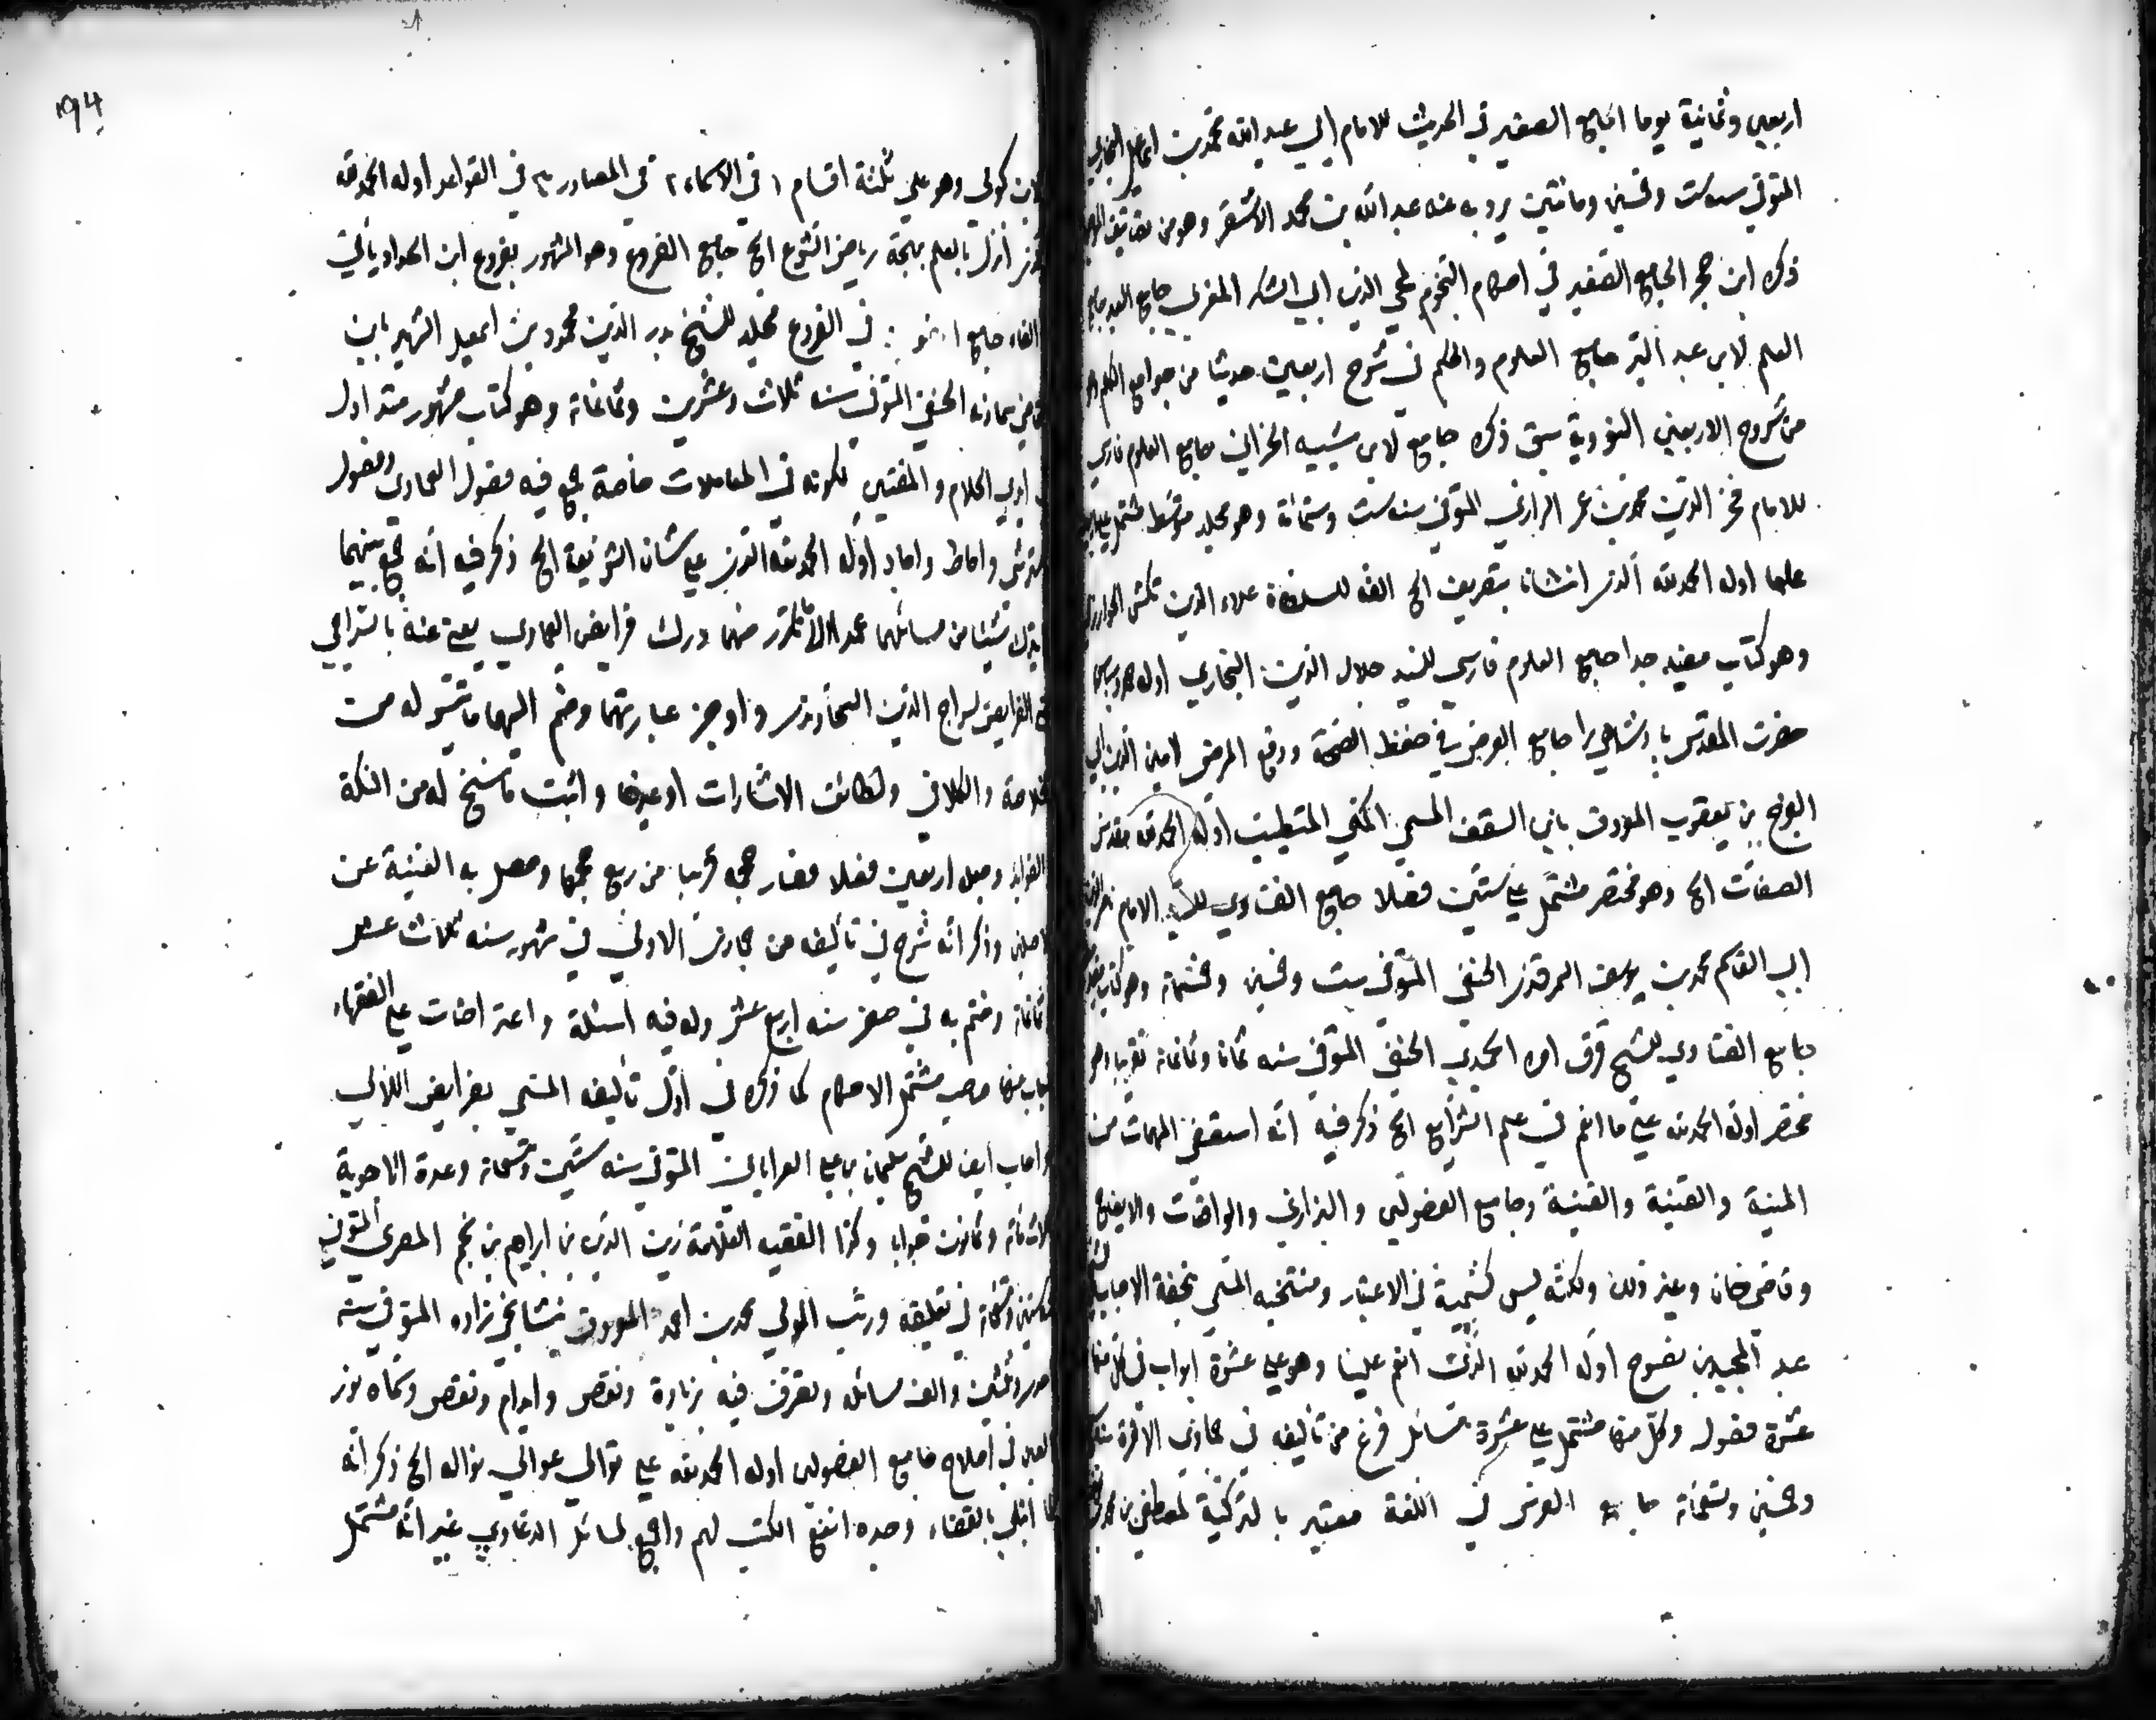 اربعين وثمانية يوما الجامع الصغير في الحديث للامام ابي عبد الله محمد بن اسماعيل البخاري
المتوفى سنه ست وخمسين ومائتين يرويه عنه عبد الله بن محمد الاشقر وهو من تصانيفه
ذكره ابن حجر الجامع الصغير في احكام النجوم لمحي الدين ابي الشكر المغربي جامع
العلم لابن عبد البر جامع العلوم والحكم في شرح اربعين حديثا من جوامع الكلم
من شروح الاربعين النووية سبق ذكره جامع لابن شبيه الحراني جامع العلوم فارسي
للامام فخر الدين محمد بن عمر الرازي المتوفى سنه ست وستمائة وهو مجلد متوسط مشتمل على
علما اوله الحمد لله الذي انشانا بتصريف الخ الفه للسلطان علاء الدين تكش الخوارزمي
وهو كتاب مفيد جدا جامع العلوم فارسي للسيد جلال الدين البخاري اوله
حضرت المقدس پادشاهي را جامع الغرض في حفظ الصحة ودفع المرض لامين الدين ابي
الفرج بن يعقوب المعروف بابن القف المسيحي الملكي المتطبب اوله الحمد لله مقدس
الصفات الخ وهو مختصر مشتمل على ستين فصلا جامع الفتاوي للسيد الامام ناصر الدين
ابي القاسم محمد بن يوسف السمرقندي الحنفي المتوفى ست وخمسين وخمسمائة وهو كتاب مفيد
جامع الفتاوي للشيخ قرق امره الحميدي الحنفي المتوفى سنه ثمانا وثمانمائة تقريبا وهو
مختصر اوله الحمد لله على ما انعم في علم الشرايع الخ ذكر فيه انه استقصى المهمات من
المنية والقنية والغنية وجامع الفصولين و البزازي والواقعات والايضاح
وقاضي خان وغير ذلك ولكنه ليس كتسميته في الاعتبار ومنتخبه المسمى بتحفة الاحباب
عبد المجيد بن نصوح اوله الحمد لله الذي انعم علينا وهو على عشرة ابواب في كل منها
عشرة فصول وكل منها مشتمل على عشرة مسائل فرغ من تأليفه في جمادي الاخرة سنه
وخمسين وتسعمائة جامع الفرس في اللغة معتبر بالتركية لمصطفى بن محمد
كولي وهو على ثلثة اقسام ١ في الاسماء ٢ في المصادر ٣ في القواعد اوله الحمد لله
الذي انزل بالعلم بهجة رياض الشرع الخ جامع الفروع وهو المشهور بفروع ابن الحداد يأتي
في الفاء جامع في الفروع مجلد للشيخ بدر الدين محمود بن اسمعيل الشهير بابن
قاضي سماونه الحنفي المتوفى سنه ثلاث وعشرين وثمانمائة وهو كتاب مشهور متداول
في ايدي الحكام والمفتين لكونه في المعاملات خاصة جمع فيه فصول العمادي وفصول
الاستروشني واحاط واجاد اوله الحمد لله الذي على شان الشريعة الخ ذكر فيه انه جمع بينهما
ولم يترك شيئا من مسائلهما عمدا الا ما تكرر منهما وترك فرايض العمادي لغنية عنه بالسراجي
الفرايض لسراج الدين السجاوندي واوجز عبارتهما وضم اليهما ما تيسر له من
الخلاصة والكافي ولطائف الاشارات او غيرها واثبت ما سنح له من النكتة
والفوائد وجعل اربعين فصلا فصار حجمه قريبا من ربع حجمها وحصل به الغنية عن
الاصلين وذكر انه شرع في تأليفه من جمادي الاولى في شهور سنه ثلاث عشر
وثمانمائة وختم به في صفر سنه اربع عشر وله فيه اسئلة واعتراضات على الفقهاء
مشتمل الاحكام كما ذكره في اول تأليفه المسمى بفرايض اللآلي
واجاب ايضا للشيخ سليمان بن علي القراماني المتوفى سنه ستين وتسعمائة وعدة الاجوبة
ثلاثمائة وثمانون جوابا وكذا الفقيه العلامة زين الدين بن ابراهيم بن نجيم المصري المتوفى
سنه سبعين وتسعمائة في تعليقه ورتب المولى محمد بن احمد المعروف بنشانجي زاده المتوفى سنه
احدى وثلثين والف مسائله وتصرف فيه بزيادة ونقص وابرام ونقض وسماه نور
العين في اصلاح جامع الفصولين اوله الحمد لله على توالي عوالي نواله الخ ذكر انه
لما ابتلي بالقضاء وجده انفع الكتب لهم واجمع لمسائل الدعاوي غير انه مشتمل